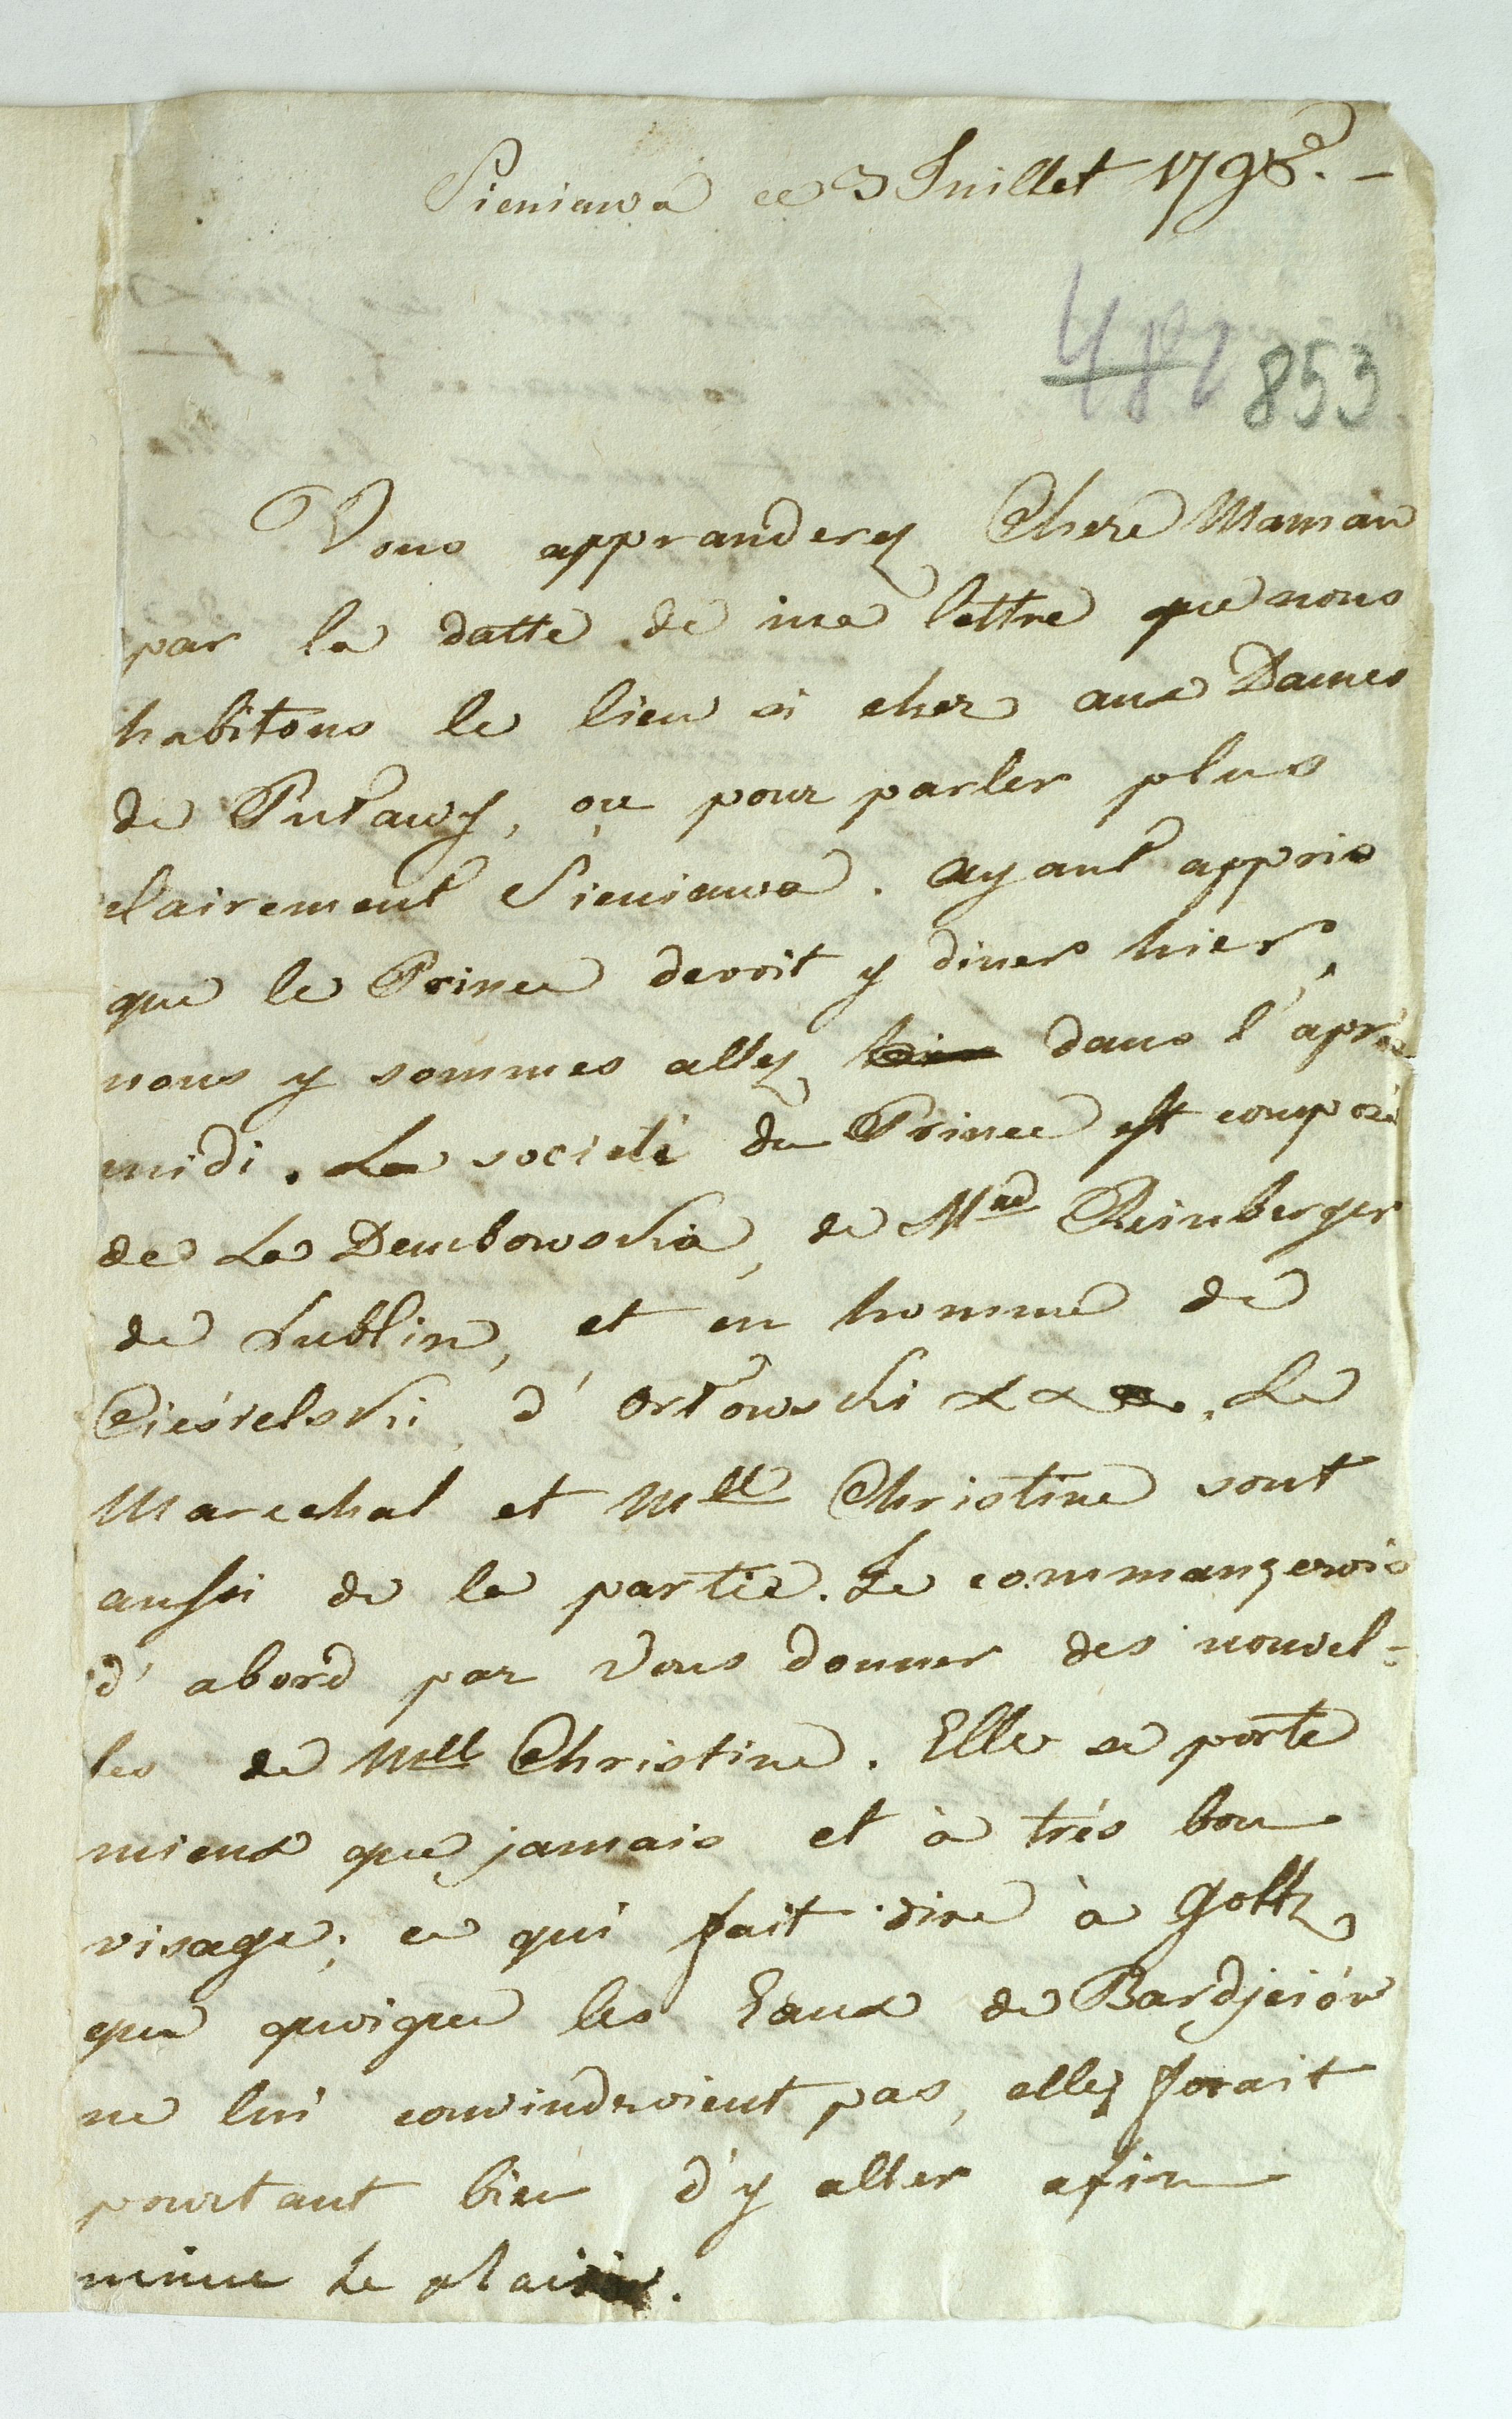 Sieniawa ce 3 Juillet 1798. –
482 853
Vous appranderez Chere Maman
par la datte de ma lettre que nous
habitons le lieu si cher aux Dames
de Puławy, ou pour parler plus
clairement Sieniawa. Ayant appris
que le Prince devoit y diner hier,
nous y sommes allez dans l'aprés
midi. La societé du Prince est composé
de La Dembowska, de Mad Reinberger
de Lublin, et en homme de
Ciesielski, d'Orłowski x x . Le
Marechal et Mlle Christine sont
aussi de la partie. Je commanzerois
d'abord par Vous donner des nouvel-
les de Mlle Christine. Elle se porte
mieux que jamais et à trés bon
visage; ce qui fait dire à Goltz
que quoique les Eaux de Bardjeióv
ne lui convindroient pas, elle ferait
pourtant bien d'y aller afin
le plaisir.